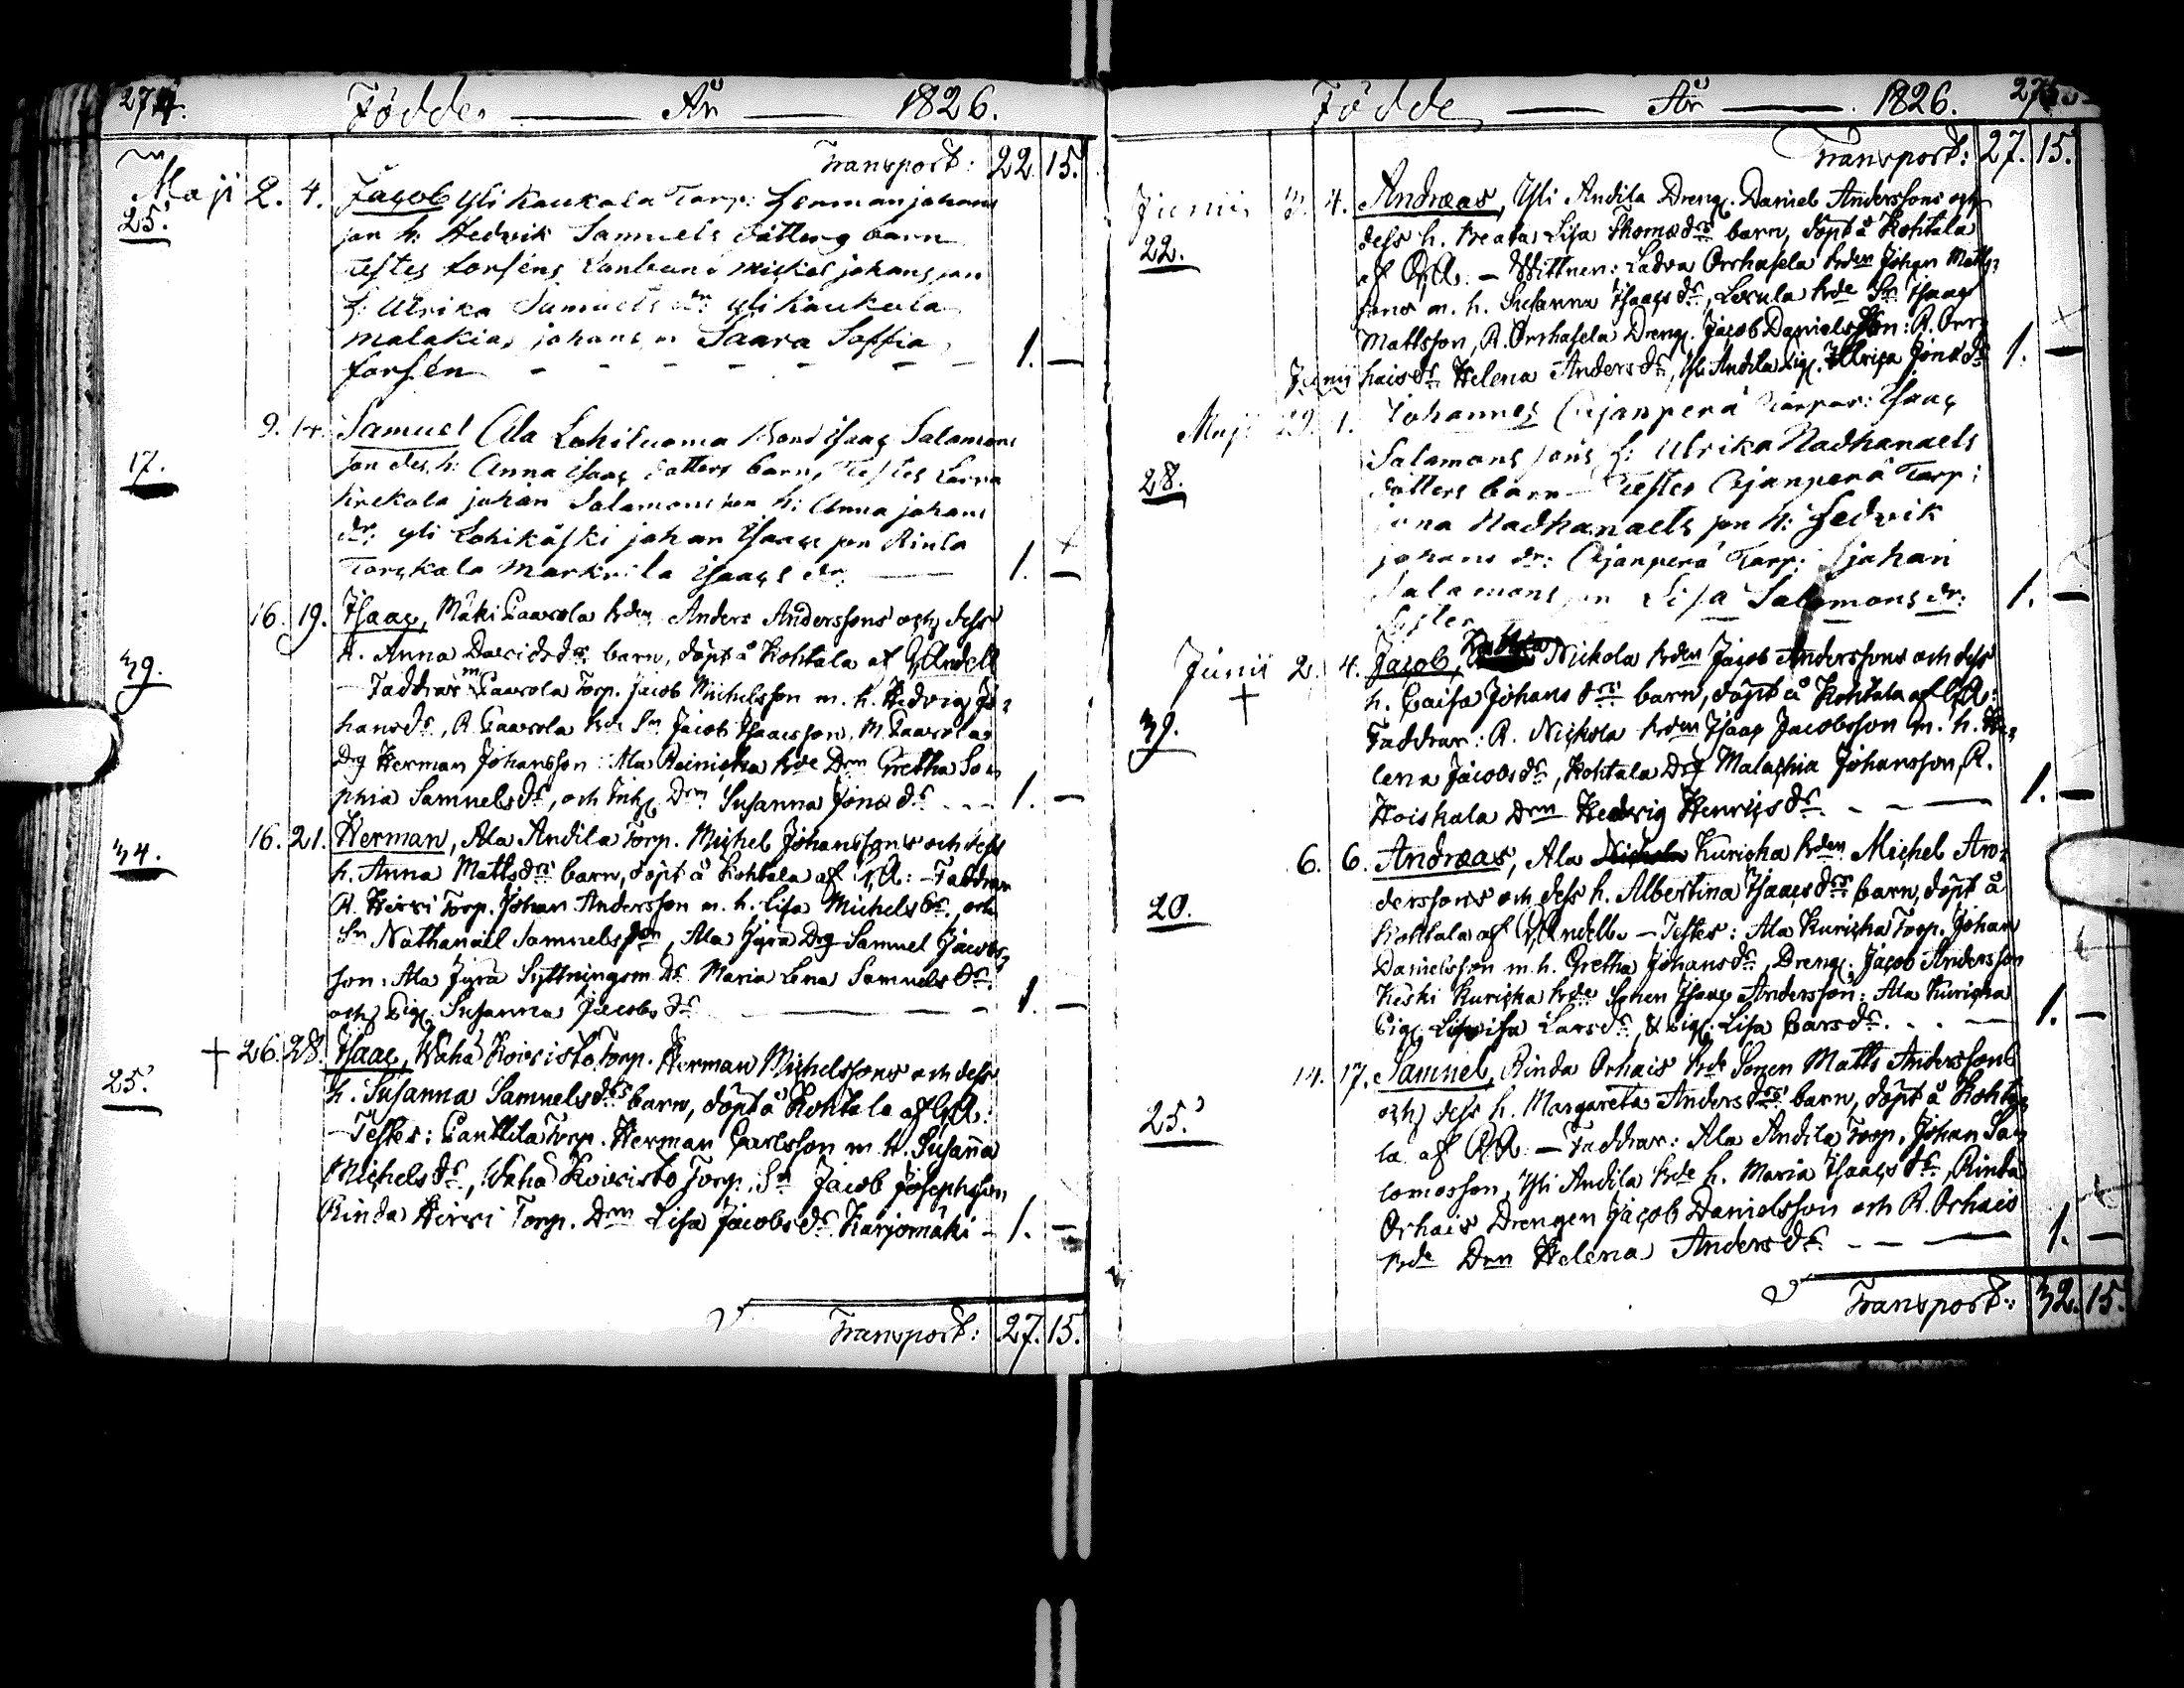 274. Födde — År — 1826.
Transport: 22. 15.
Maji 2. 4. Jacob Yli Kaukola Torp: Herman johans
25. son h: Hedvik Samuels dotters barn
testes forséns Michel johans son
h: Ulrika Samuels dr: yli Kaukola
Malakias johans Saara Soffia
forsén - - - - - - 1. —
9. 14. Samuel Ala Lohiluoma Bond Isaac Salamons
17. son des h: Anna Isaac dotters barn, Testes
johan Salamons son h: Anna johans
dr: yli Lohikåski johan Isaacs son Rinta
Torskala Isaacs dr: — 1. —
16. 19. Isaac, Mäki Paavola bden Anders Anderssons och dess
39. h. Anna Davidsdrs barn, döpt å Kohtala af G. Andell
— Faddrar: M Paavola Torp. Jacob Michelsson m. h. Hedvig Jo-
hansdr, R. Paavola bde Sn Jacob Isaacsson, M. Paavola
drg Herman Johansson: Ala Reinicka bde Drn Gretha So-
phia Samuelsdr, och Inhg Drn Susanna Jonædr - - 1. —
16. 21. Herman, Ala Andila Torp. Michel Johanssons och dess
34. h. Anna Mattsdrs barn, döpt å Kohtala af G.A: — Faddrar
R. Hirvi Torp. Johan Andersson m. h. Lisa Michelsdr, och
Sn Nathanaël Samuelsson, Ala Jyrä Drg Samuel Jacobs-
son: Ala Jyrä Syttningsm. dr Maria Lena Samuelsdr
och Pig. Susanna Jacobsdr — — 1. —
† 26. 28. Isaac, Wähä Koivisto Torp. Herman Michelssons och dess
25. h. Susanna Samuelsdrs barn, döpt å Kohtala af G.A:
— Testes: Panttila Torp. Herman Carlsson m. h. Susanna
Michelsdr, Wähä Koivisto Torp. Sn Jacob Josephsson,
Rinda Hirvi Torp. Drn Lisa Jacobsdr Karjomäki — 1. —
Transport: 27. 15.
Födde — År — 1826. 275.
Transport: 27. 15.
Junii 3. 4. Andreas, Yli Andila Dreng. Daniel Anderssons och
22. dess h. Beata Lisa Thomædrs barn, döpt å Kohtala
af G.A. — Wittnen: Ladva Orrhasela bden Johan Matts-
sons m. h. Susanna Isaacsdr, bde Sn Isaac
Mattsson, R. Orrhasela Dreng. Jacob Danielsson: R. Orr-
Junii haisdr Helena Andersdr, Yli Andila Pig. Ulrica Jonædr 1. —
Maji 29. 1. Johannes Ojanperä Torpar: Isaac
28. Salamons sons h: Ulrika Nadhanaels
dotters barn — Testes Ojanperä Torp:
jona Nadhanaels son h: Hedvik
johans dr: Ojanperä Torp: johan
Salamons son Lisa Salomons dr: 1. —
Junii 2. 4. Jacob, Nickola bden Jacob Anderssons och dess
† h. Caisa Johansdrs barn, döpt å Kohtala af G.A:
39. Faddrar: R. Nickola bden Isaac Jacobsson m. h. He-
lena Jacobsdr, Kohtala Drg Malachia Johansson, R.
Koiskala Drn Hedvig Henricsdr - - — 1. —
6. 6. Andreas, Ala Kuricka bden Michel An-
derssons och dess h. Albertina Isaacsdrs barn, döpt å
20. Kohtala af G. Andell. — Testes: Ala Kuricka Torp. Johan
Danielsson m. h. Gretha Johansdr, Dreng. Jacob Andersson
Keski Kuricka bde Sonen Isaac Andersson: Ala Kuricka
Pig. Larsdr, & Pig. Lisa Larsdr. - - — 1. —
14. 17. Samuel, Rinda Orhais bde Sonen Matts Anderssons
och dess h. Margareta Andersdrs barn, döpt å Kohta-
25. la af G.A. — Faddrar: Ala Andila Torp. Johan Sa-
lomosson, Yli Andila bde h. Maria Isaacsdr, Rinda
Orhais Drengen Jacob Danielsson och R. Orhais
bde Drn Helena Andersdr. - - — 1. —
Transport: 32. 15.